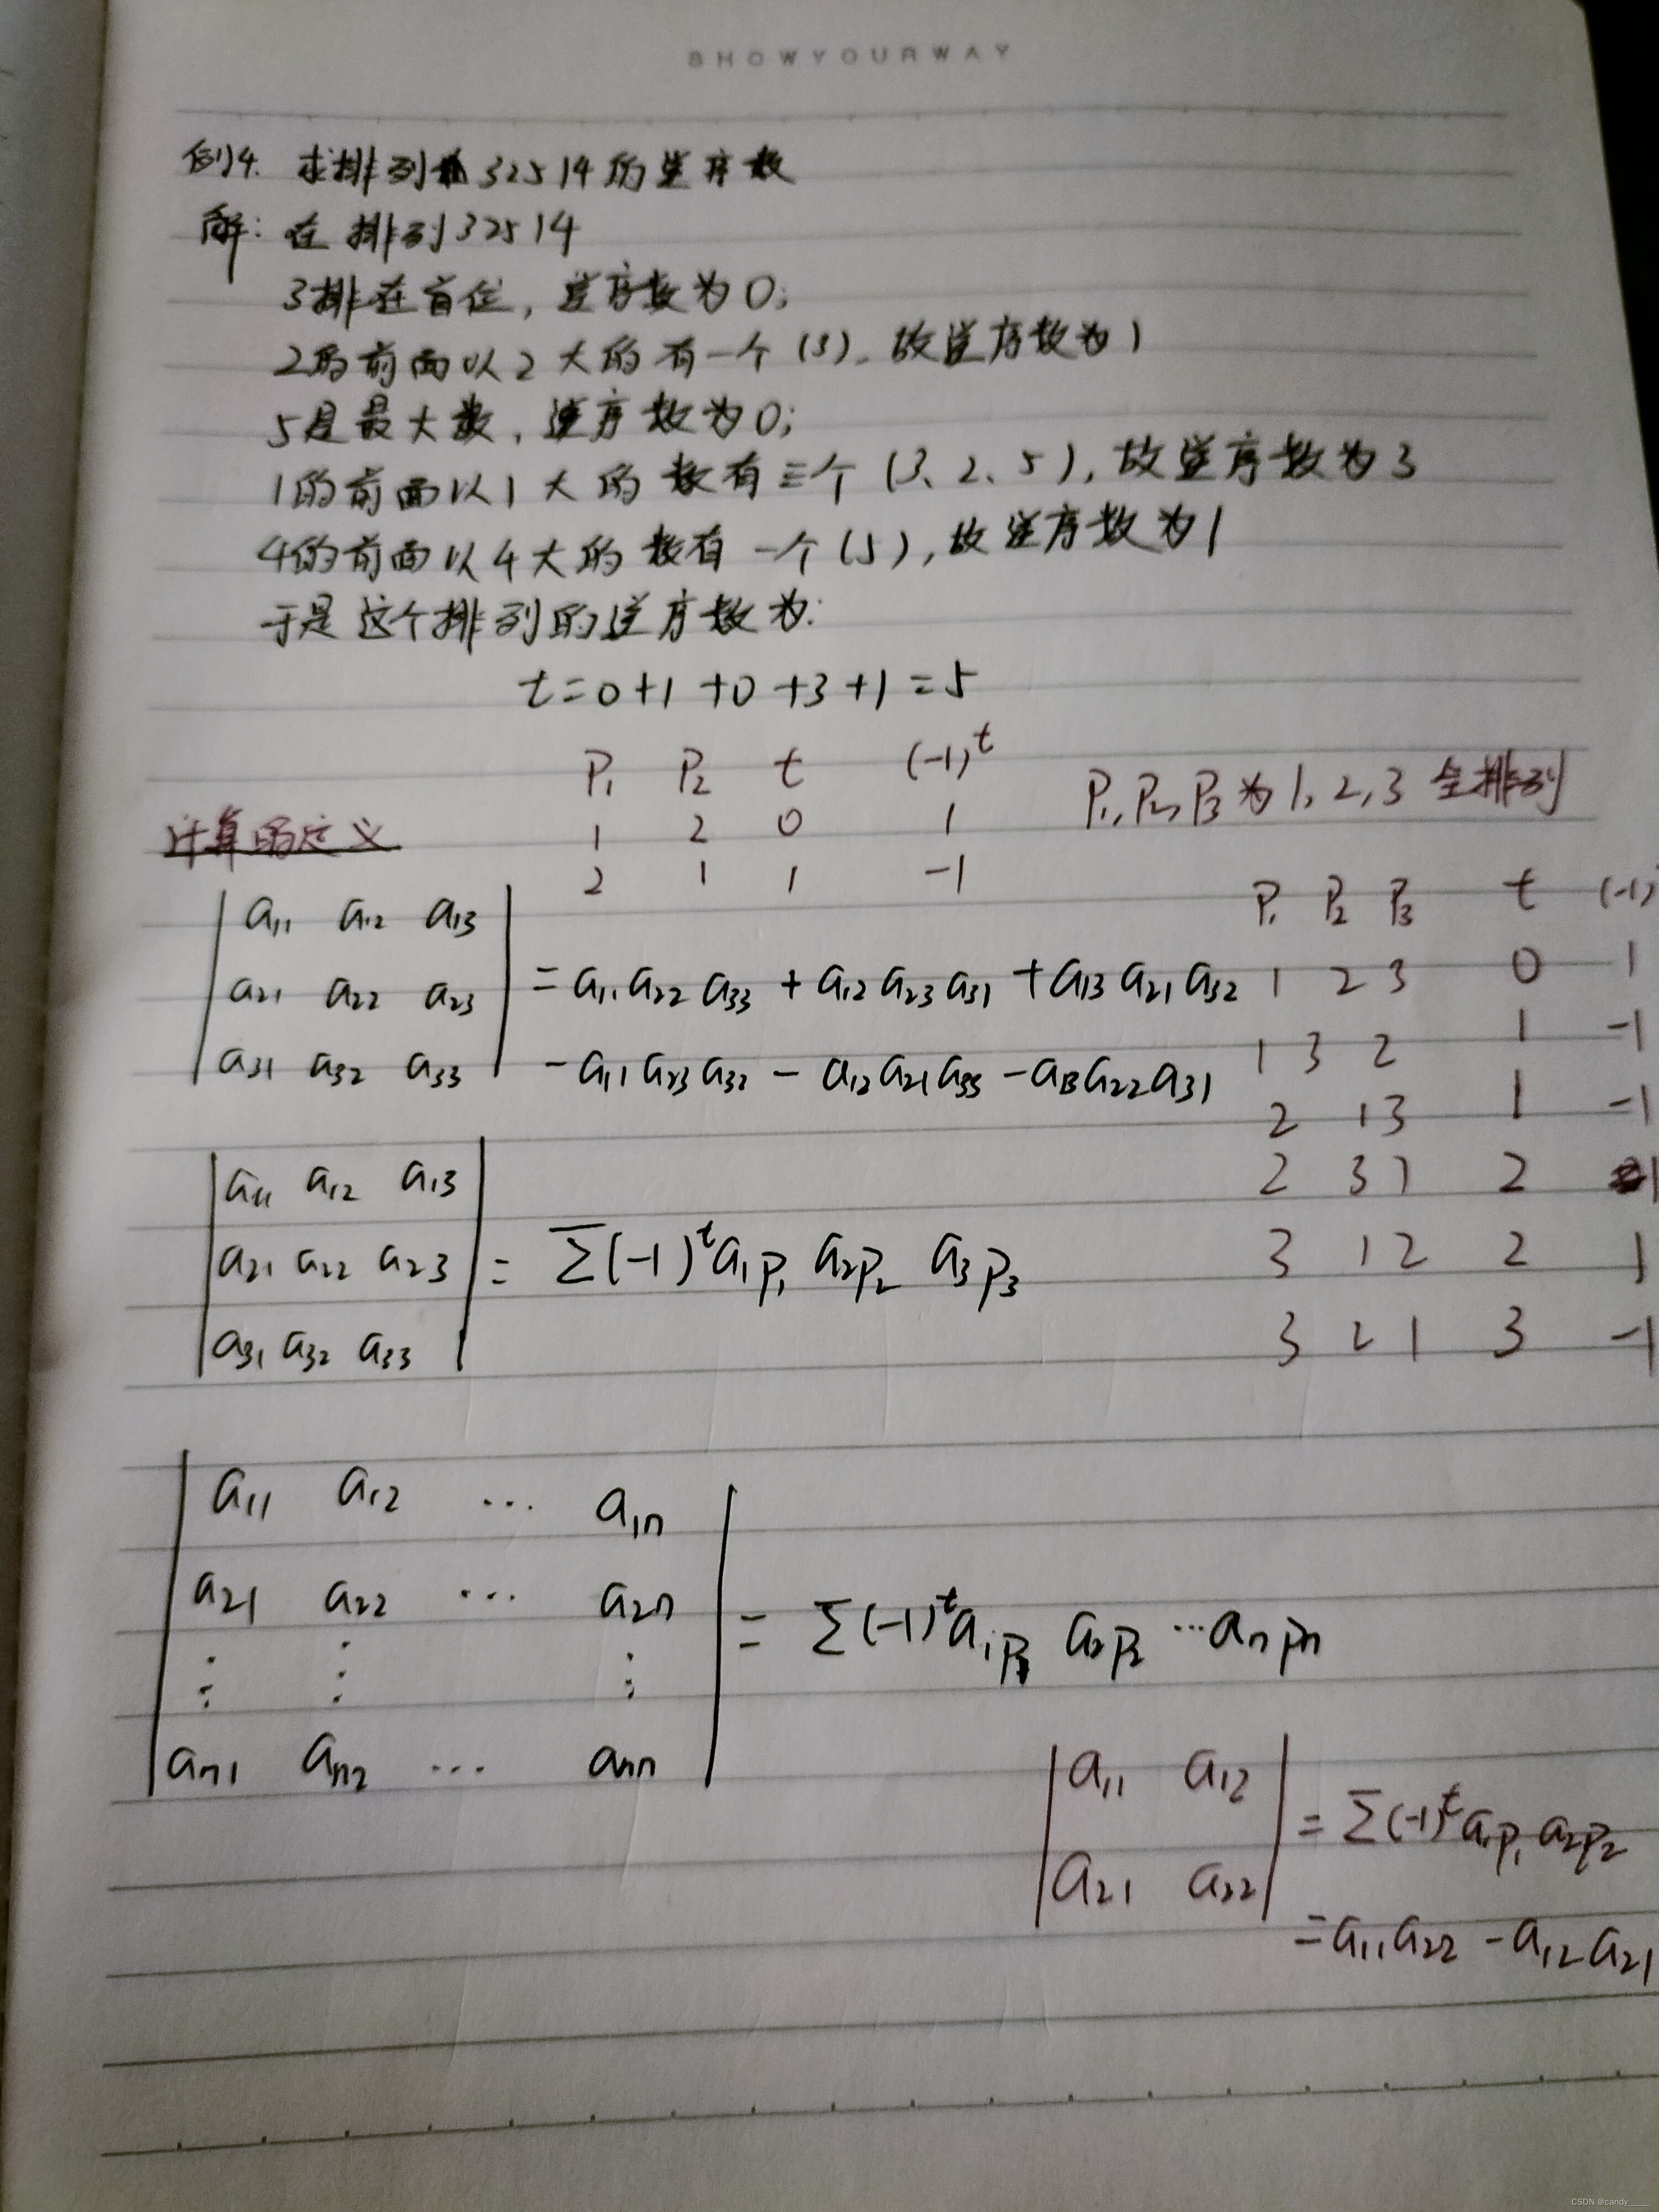 SHOWYOURWAY
例4. 求排列 32514的逆序数
解: 在排列32514
3排在首位, 逆序数为0;
2的前面以2大的有一个(3), 故逆序数为1
5是最大数, 逆序数为0;
1的前面以1大的数有三个(3、2、5), 故逆序数为3
4的前面以4大的数有一个(5), 故逆序数为1
于是这个排列的逆序数为:
t=0+1+0+3+1=5
P₁ P₂ t (-1)^t
1 2 0 1
2 1 1 -1
P₁, P₂, P₃为1, 2, 3 全排列
计算的定义
a₁₁ a₁₂ a₁₃
a₂₁ a₂₂ a₂₃
a₃₁ a₃₂ a₃₃
= a₁₁a₂₂a₃₃ + a₁₂a₂₃a₃₁ + a₁₃a₂₁a₃₂
- a₁₁a₂₃a₃₂ - a₁₂a₂₁a₃₃ - a₁₃a₂₂a₃₁
P₁ P₂ P₃ t (-1)
1 2 3 0 1
1 3 2 1 -1
2 1 3 1 -1
2 3 1 2 1
3 1 2 2 1
3 2 1 3 -1
a₁₁ a₁₂ a₁₃
a₂₁ a₂₂ a₂₃
a₃₁ a₃₂ a₃₃
= Σ(-1)^t a₁p₁ a₂p₂ a₃p₃
a₁₁ a₁₂ ... a₁n
a₂₁ a₂₂ ... a₂n
⋮ ⋮ ⋮
an₁ an₂ ... ann
= Σ(-1)^t a₁p₁ a₂p₂ ... anpn
a₁₁ a₁₂
a₂₁ a₂₂
= Σ(-1)^t a₁p₁ a₂p₂
= a₁₁a₂₂ - a₁₂a₂₁
CSDN @candy____